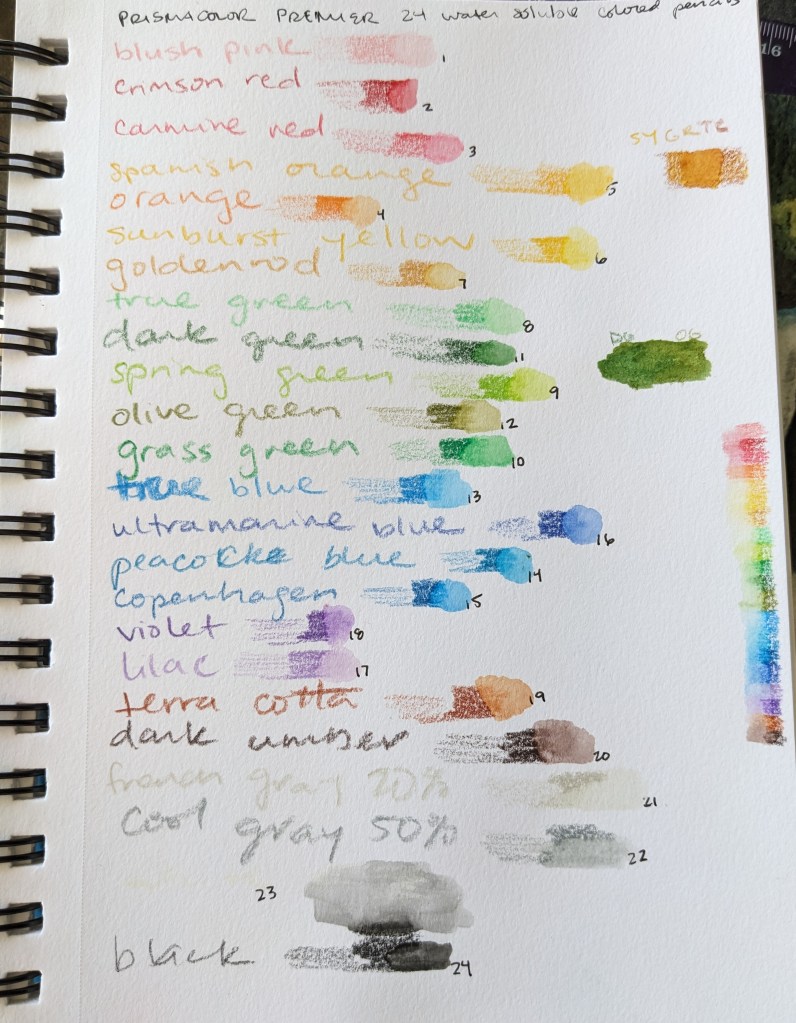 PRISMACOLOR PREMIER 24 water soluble colored pencils
blush pink 1
crimson red 2
carmine red 3
SY GR TC
spanish orange 5
orange 4
sunburst yellow 6
goldenrod 7
true green 8
dark green 11
DG OG
spring green 9
olive green 12
grass green 10
true blue 13
ultramarine blue 16
peacocke blue 14
copenhagen 15
violet 18
lilac 17
terra cotta 19
dark umber 20
french gray 20% 21
cool gray 50% 22
23
black 24
16